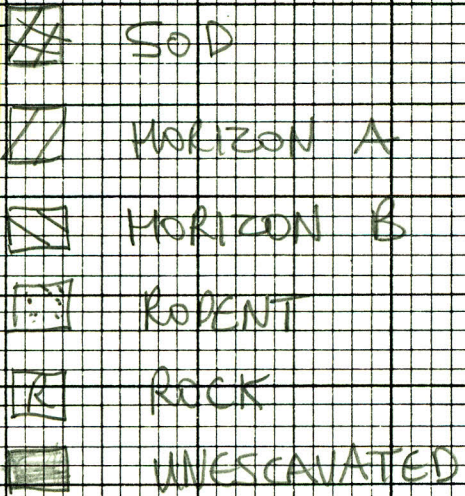 SOD
HORIZON A
HORIZON B
RODENT
R ROCK
UNESCAVATED